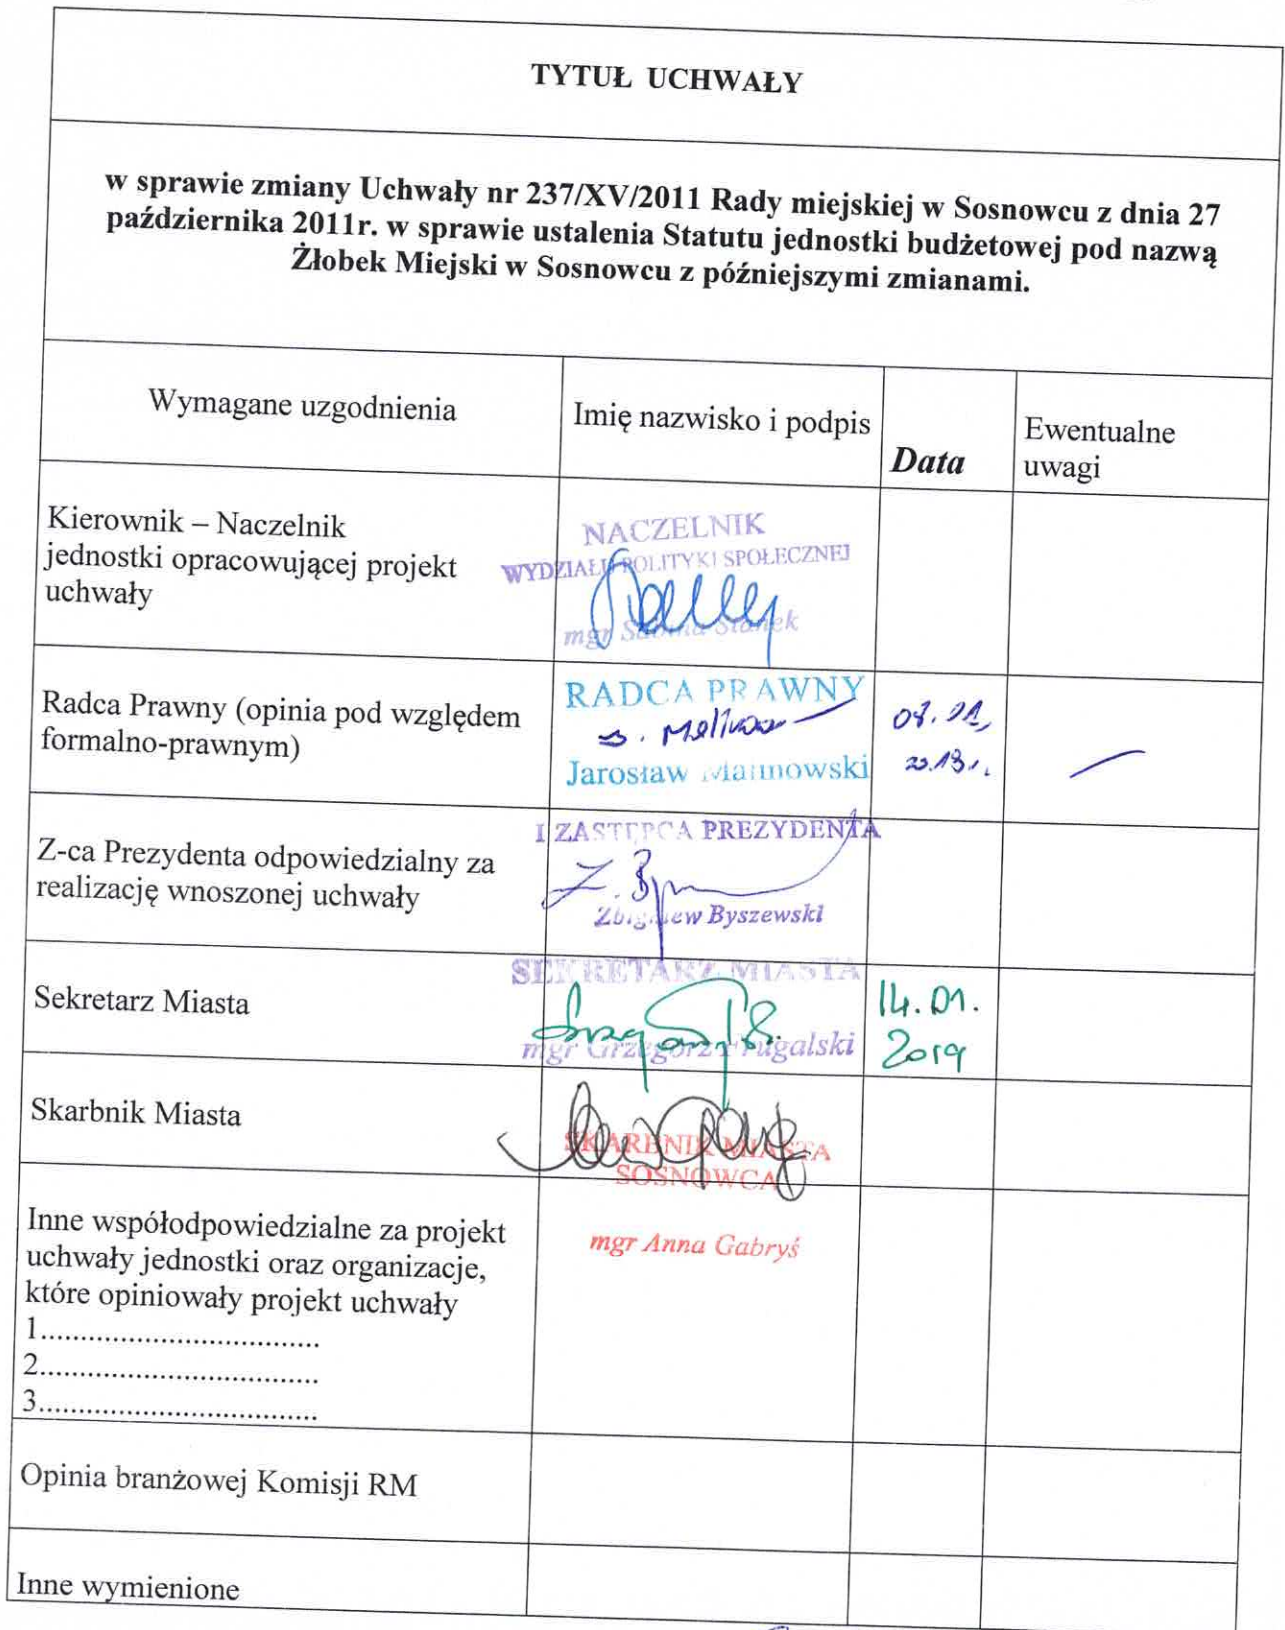 TYTUŁ UCHWAŁY
w sprawie zmiany Uchwały nr 237/XV/2011 Rady miejskiej w Sosnowcu z dnia 27
października 2011r. w sprawie ustalenia Statutu jednostki budżetowej pod nazwą
Żłobek Miejski w Sosnowcu z późniejszymi zmianami.
Wymagane uzgodnienia
Imię nazwisko i podpis
Data
Ewentualne
uwagi
Kierownik – Naczelnik
jednostki opracowującej projekt
uchwały
NACZELNIK
WYDZIAŁU POLITYKI SPOŁECZNEJ
mgr Sabina Stanek
Radca Prawny (opinia pod względem
formalno-prawnym)
RADCA PRAWNY
Jarosław Malinowski
Z-ca Prezydenta odpowiedzialny za
realizację wnoszonej uchwały
I ZASTĘPCA PREZYDENTA
Z.
Zbigniew Byszewski
Sekretarz Miasta
SEKRETARZ MIASTA
mgr Grzegorz
14.01.
2019
Skarbnik Miasta
SKARBNIK MIASTA
SOSNOWCA
mgr Anna Gabryś
Inne współodpowiedzialne za projekt
uchwały jednostki oraz organizacje,
które opiniowały projekt uchwały
1...................................
2...................................
3...................................
Opinia branżowej Komisji RM
Inne wymienione